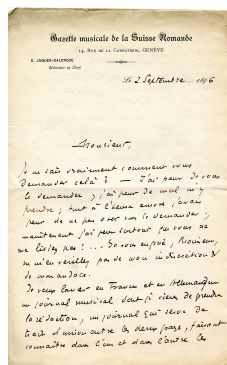 Gazette musicale de la Suisse Romande
14, Rue de la Corraterie, GENÈVE
E. JAQUES-DALCROZE
Rédacteur en Chef
le 2 Septembre 1896
Monsieur,
Je ne sais vraiment comment vous
demander cela? — J'ai peur de vous
le demander; j'ai peur de mal m'y
prendre; tout à l'heure encore j'avais
peur de ne pas oser vous le demander;
maintenant j'ai peur surtout que vous ne
me lisiez pas!... Je vous en prie, Monsieur,
ne m'en veuillez pas de mon indiscrétion &
de mon audace.
Je veux lancer en France et en Allemagne
un journal musical dont je viens de prendre
la rédaction, un journal qui serve de
trait d'union entre les deux pays, faisant
connaître dans l'un et dans l'autre les